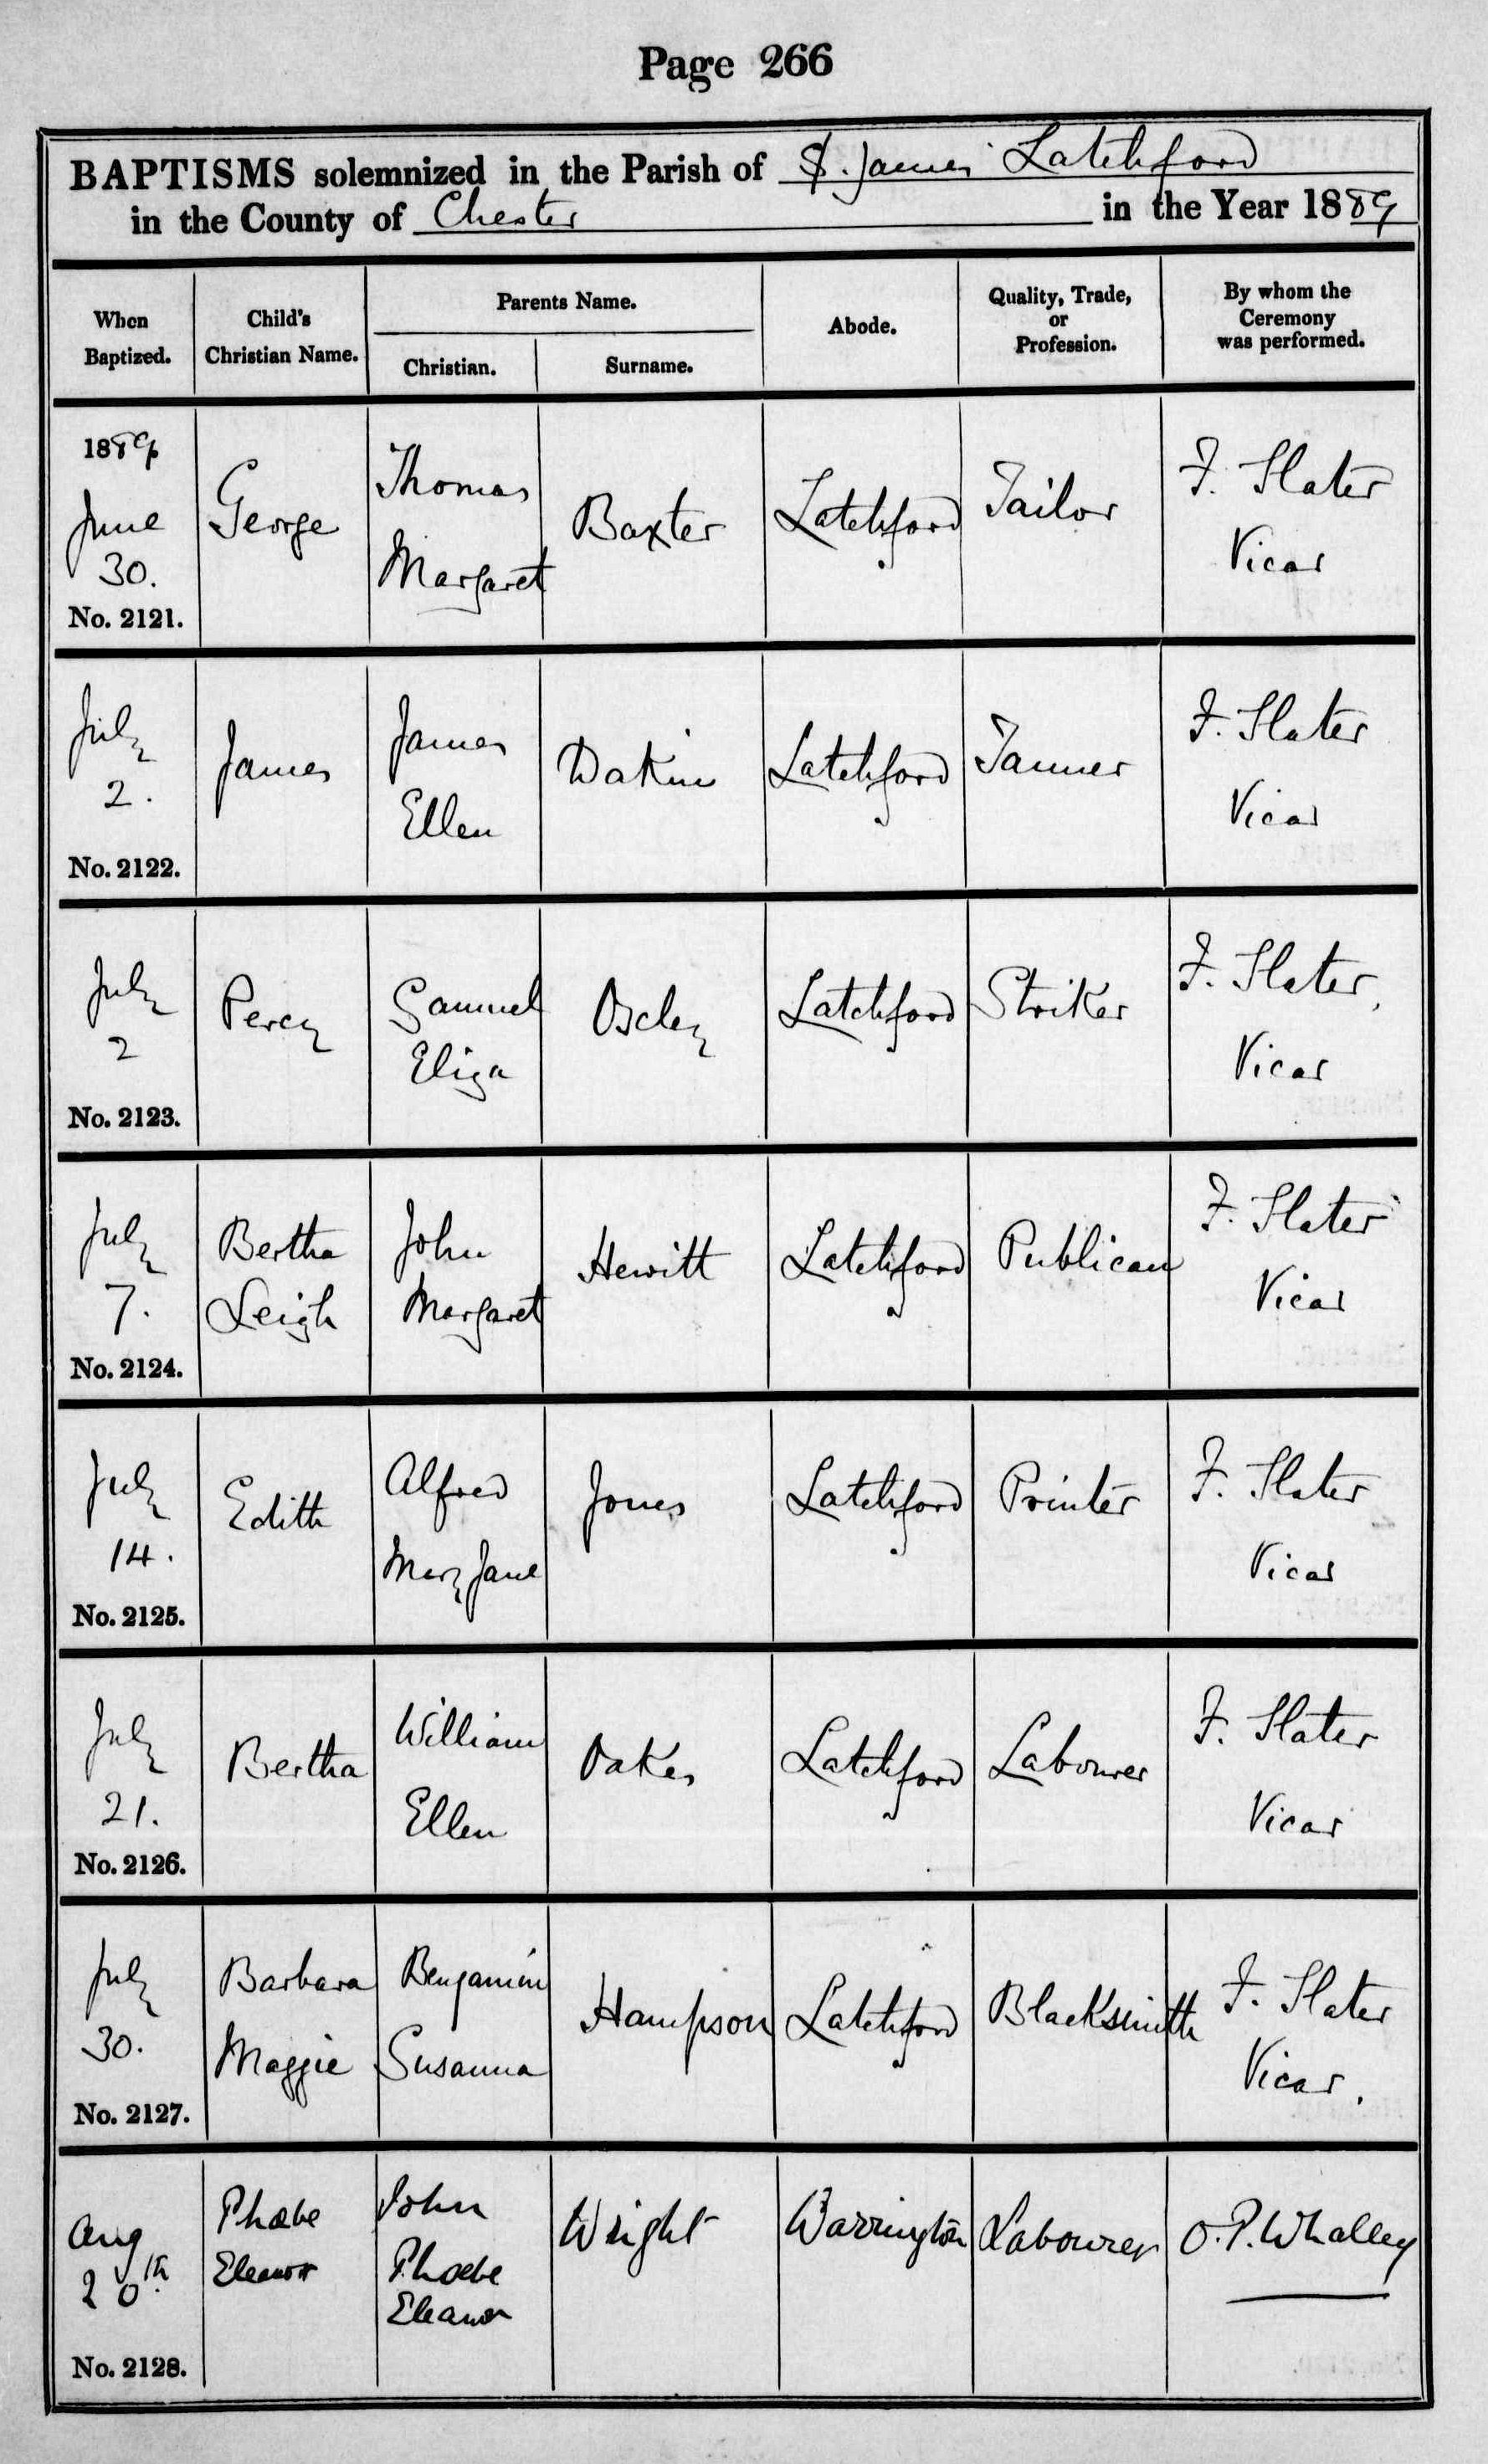 Page 266
BAPTISMS solemnized in the Parish of St. James Latchford
in the County of Chester in the Year 1889
When Baptized. Child's Christian Name. Parents Name. Christian. Surname. Abode. Quality, Trade, or Profession. By whom the Ceremony was performed.
1889
June
30.
No. 2121.
George
Thomas
Margaret
Baxter
Latchford
Tailor
F. Slater
Vicar
July
2.
No. 2122.
James
James
Ellen
Dakin
Latchford
Tanner
F. Slater
Vicar
July
2
No. 2123.
Percy
Samuel
Eliza
Latchford
Striker
F. Slater
Vicar
July
7.
No. 2124.
Bertha
Leigh
John
Margaret
Hewitt
Latchford
Publican
F. Slater
Vicar
July
14.
No. 2125.
Edith
Alfred
Mary Jane
Jones
Latchford
Printer
F. Slater
Vicar
July
21.
No. 2126.
Bertha
William
Ellen
Oakes
Latchford
Labourer
F. Slater
Vicar
July
30.
No. 2127.
Barbara
Maggie
Benjamin
Susanna
Hampson
Latchford
Blacksmith
F. Slater
Vicar.
Aug
20th.
No. 2128.
Phoebe
Eleanor
John
Phoebe
Eleanor
Wright
Warrington
Labourer
O. P. Whalley